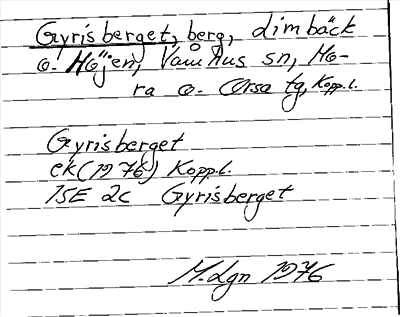 Gyrisberget, berg, dimbäck
o. Höjen, Våmhus sn, Mo-
ra o. Orsa tg, Kopp.l.
Gyrisberget
ek (1976) Kopp.l.
15E 2c Gyrisberget
M. Lgn 1976